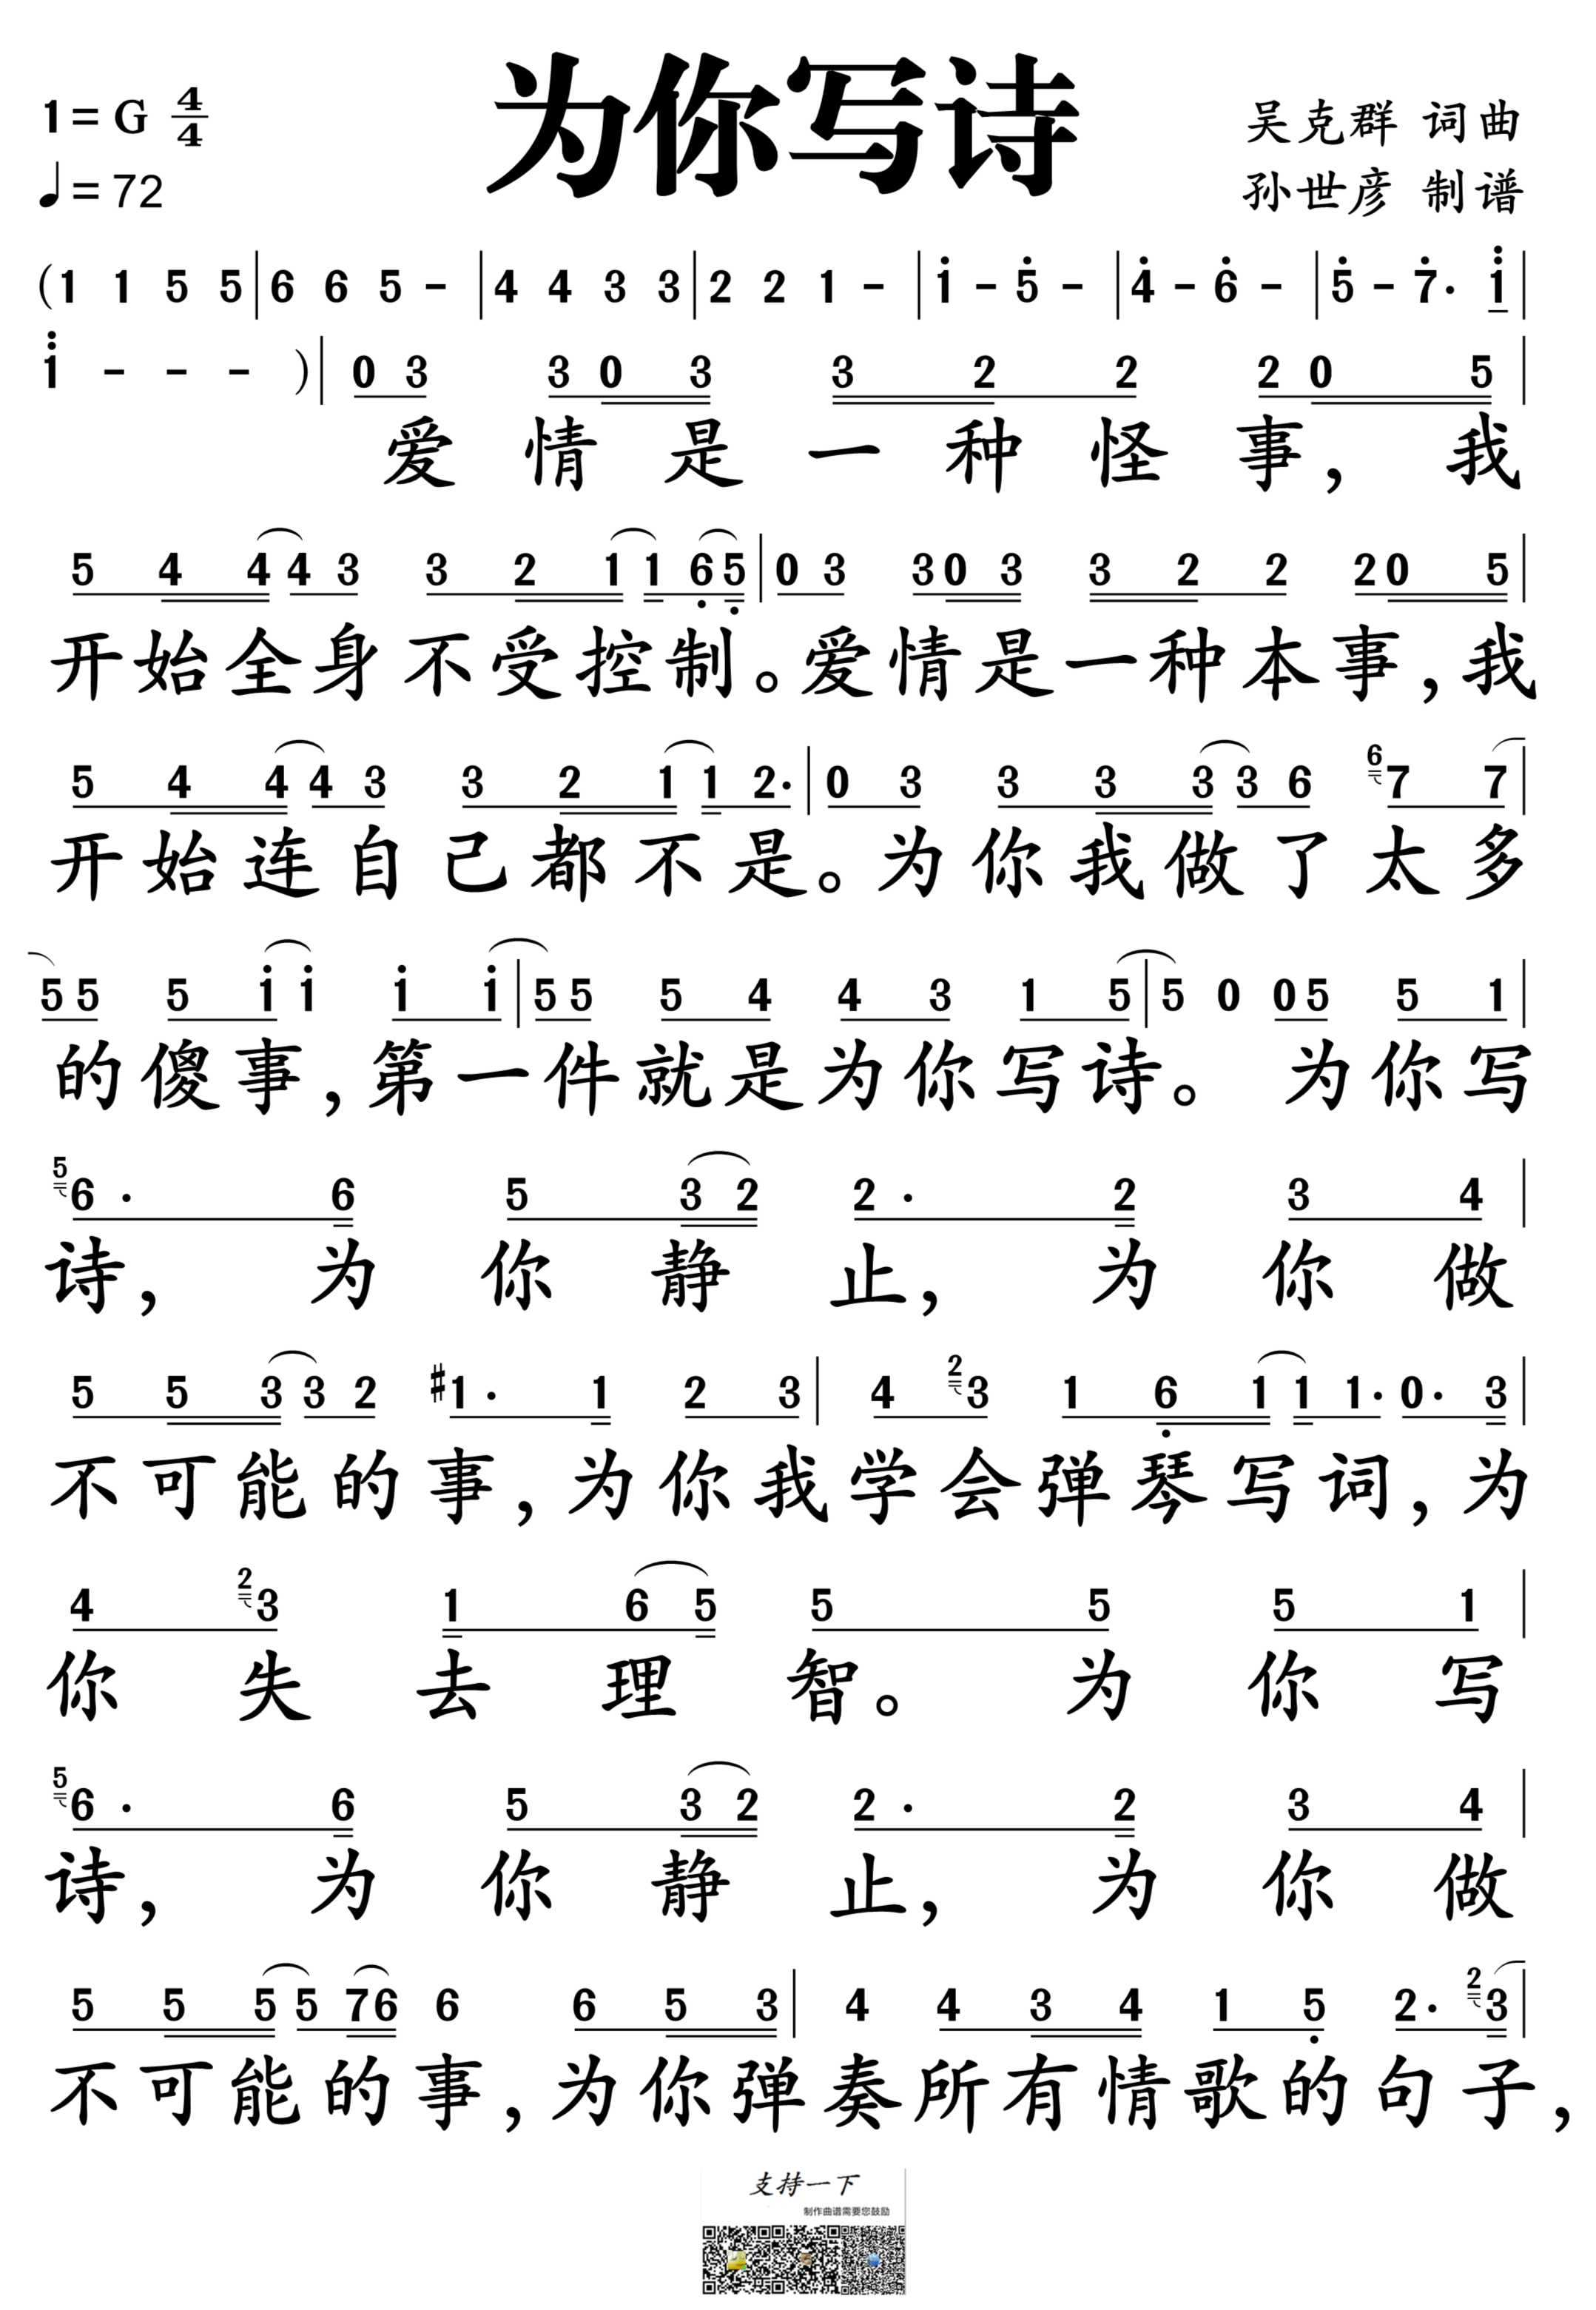 为你写诗
1=G 4/4
♩=72
吴克群 词曲
孙世彦 制谱
(1 1 5 5|6 6 5 -|4 4 3 3|2 2 1 -|i - 5̇ -|4̇ - 6̇ -|5̇ - 7̇· 1̈|
1̈ - - - )|0 3 3 0 3 3 2 2 2 0 5|
爱情是一种怪事，我
5 4 4 4 3 3 2 1 1 6̣ 5̣|0 3 3 0 3 3 2 2 2 0 5|
开始全身不受控制。爱情是一种本事，我
5 4 4 4 3 3 2 1 1 2·|0 3 3 3 3 3 6 6 7 7|
开始连自己都不是。为你我做了太多
5 5 5 i i i i|5 5 5 4 4 3 1 5|5 0 0 5 5 1|
的傻事，第一件就是为你写诗。为你写
5 6· 6 5 3 2 2· 2 3 4|
诗，为你静止，为你做
5 5 3 3 2 #1· 1 2 3|4 2 3 1 6̣ 1 1 1· 0· 3|
不可能的事，为你我学会弹琴写词，为
4 2 3 1 6 5 5 5 5 1|
你失去理智。为你写
5 6· 6 5 3 2 2· 2 3 4|
诗，为你静止，为你做
5 5 5 5 7 6 6 6 5 3|4 4 3 4 1 5̣ 2· 2 3|
不可能的事，为你弹奏所有情歌的句子，
支持一下
制作曲谱需要您鼓励